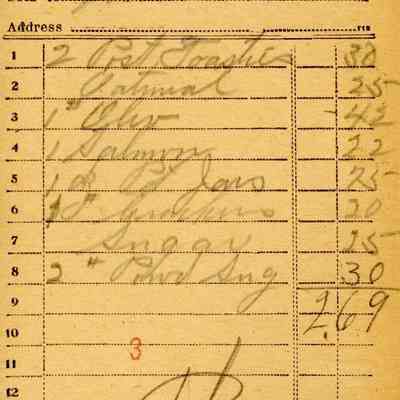 Address
1 2 Post Toasties 38
2 Oatmeal 25
3 1 " 42
4 1 Salmon 22
5 1 Jars 25
6 1 " Crackers 20
7 Sugar 25
8 2 " Powd Sug 30
9 2.69
10
3
11
12